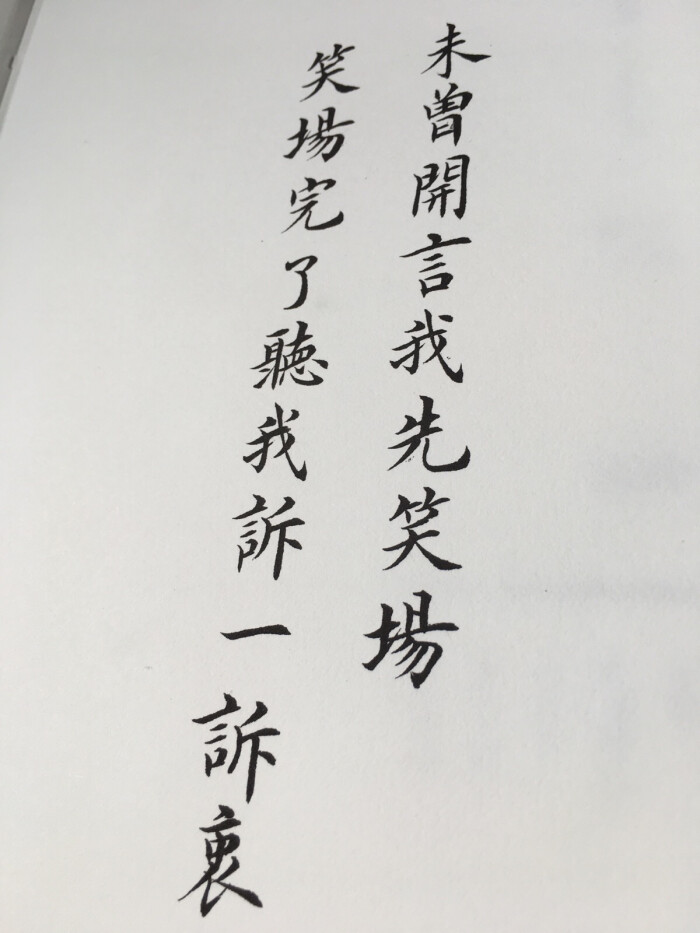 未曾開言我先笑場
笑場完了聽我訴一訴衷